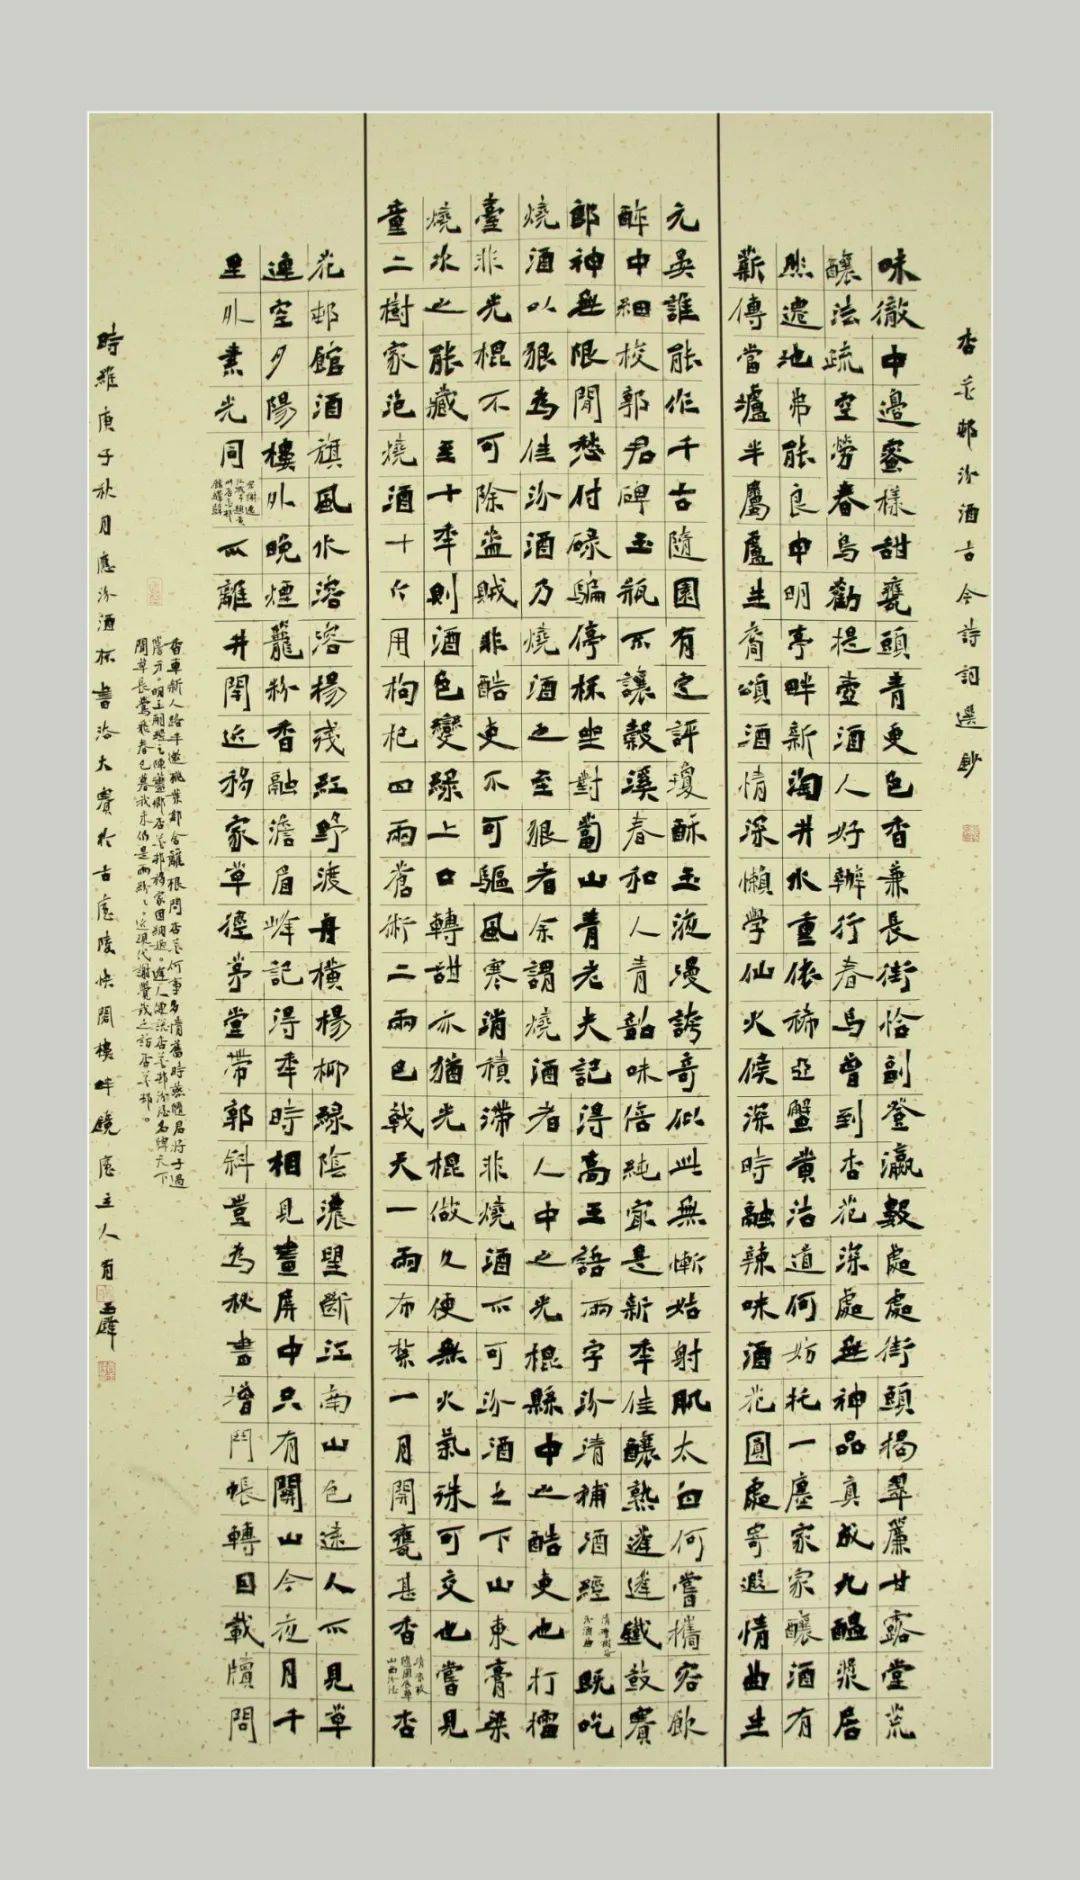 杏花邨汾酒古今詩詞選鈔
味徹中邊蜜樣甜甕頭青更色香兼長街恰副登瀛數處處街頭揭翠簾甘露堂荒
釀法疏空勞春鳥勸提壺酒人好辦行春馬曾到杏花深處無神品真成九醞漿居
然遺地弗能良申明亭畔新淘井水重依稀亞蟹黃沽道何妨托一廛家家釀酒有
薪傳當壚半屬盧生裔頌酒情深懶學仙火候深時融辣味酒花圓處寄遐情曲生
元吳誰能作千古隨園有定評瓊酥玉液漫誇奇似此無慚姑射肌太白何嘗攜客飲
醉中細校郭君碑玉瓶不讓穀溪春和人青韶味倍純寗是新年佳釀熟遲遲鐵鼓賽
郎神無限閒愁付碌騙停杯坐對當山青老夫記得高王語兩字汾清補酒經清曹樹谷汾酒曲既吃
燒酒以狠為佳汾酒乃燒酒之至狠者余謂燒酒者人中之光棍縣中之酷吏也打擂
臺非光棍不可除盜賊非酷吏不可驅風寒消積滯非燒酒不可汾酒之下山東膏粱
燒次之能藏至十年則酒色變綠上口轉甜亦猶光棍做久便無火氣殊可交也嘗見
童二樹家泡燒酒十斤用枸杞四兩蒼術二兩巴戟天一兩布紮一月開甕甚香清袁枚隨園食單山西汾酒杏
花邨館酒旗風水溶溶楊殘紅野渡舟橫楊柳綠陰濃望斷江南山色遠人不見草
連空夕陽樓外晚煙籠粉香融澹眉峰記得年時相見畫屏中只有關山今夜月千
里外素光同宋謝逸江城子題黃州杏花邨館驛壁不離井閈近移家草徑茅堂帶郭斜豈為秘書增鬥帳轉因載牘問
香車新人路半邀桃葉郵舍離根問杏花何事多情舊時燕隨君將子過
窗牙。明王朗照之陳靈鄉杏花邨移家因詶。逢人便說杏花邨汾酒名牌天下
聞草長鶯飛春已暮我來仍是雨紛紛。近現代謝覺哉之訪杏花邨。
時維庚子秋月應汾酒杯書法大賽於古廬陵快閣樓畔曉廬主人